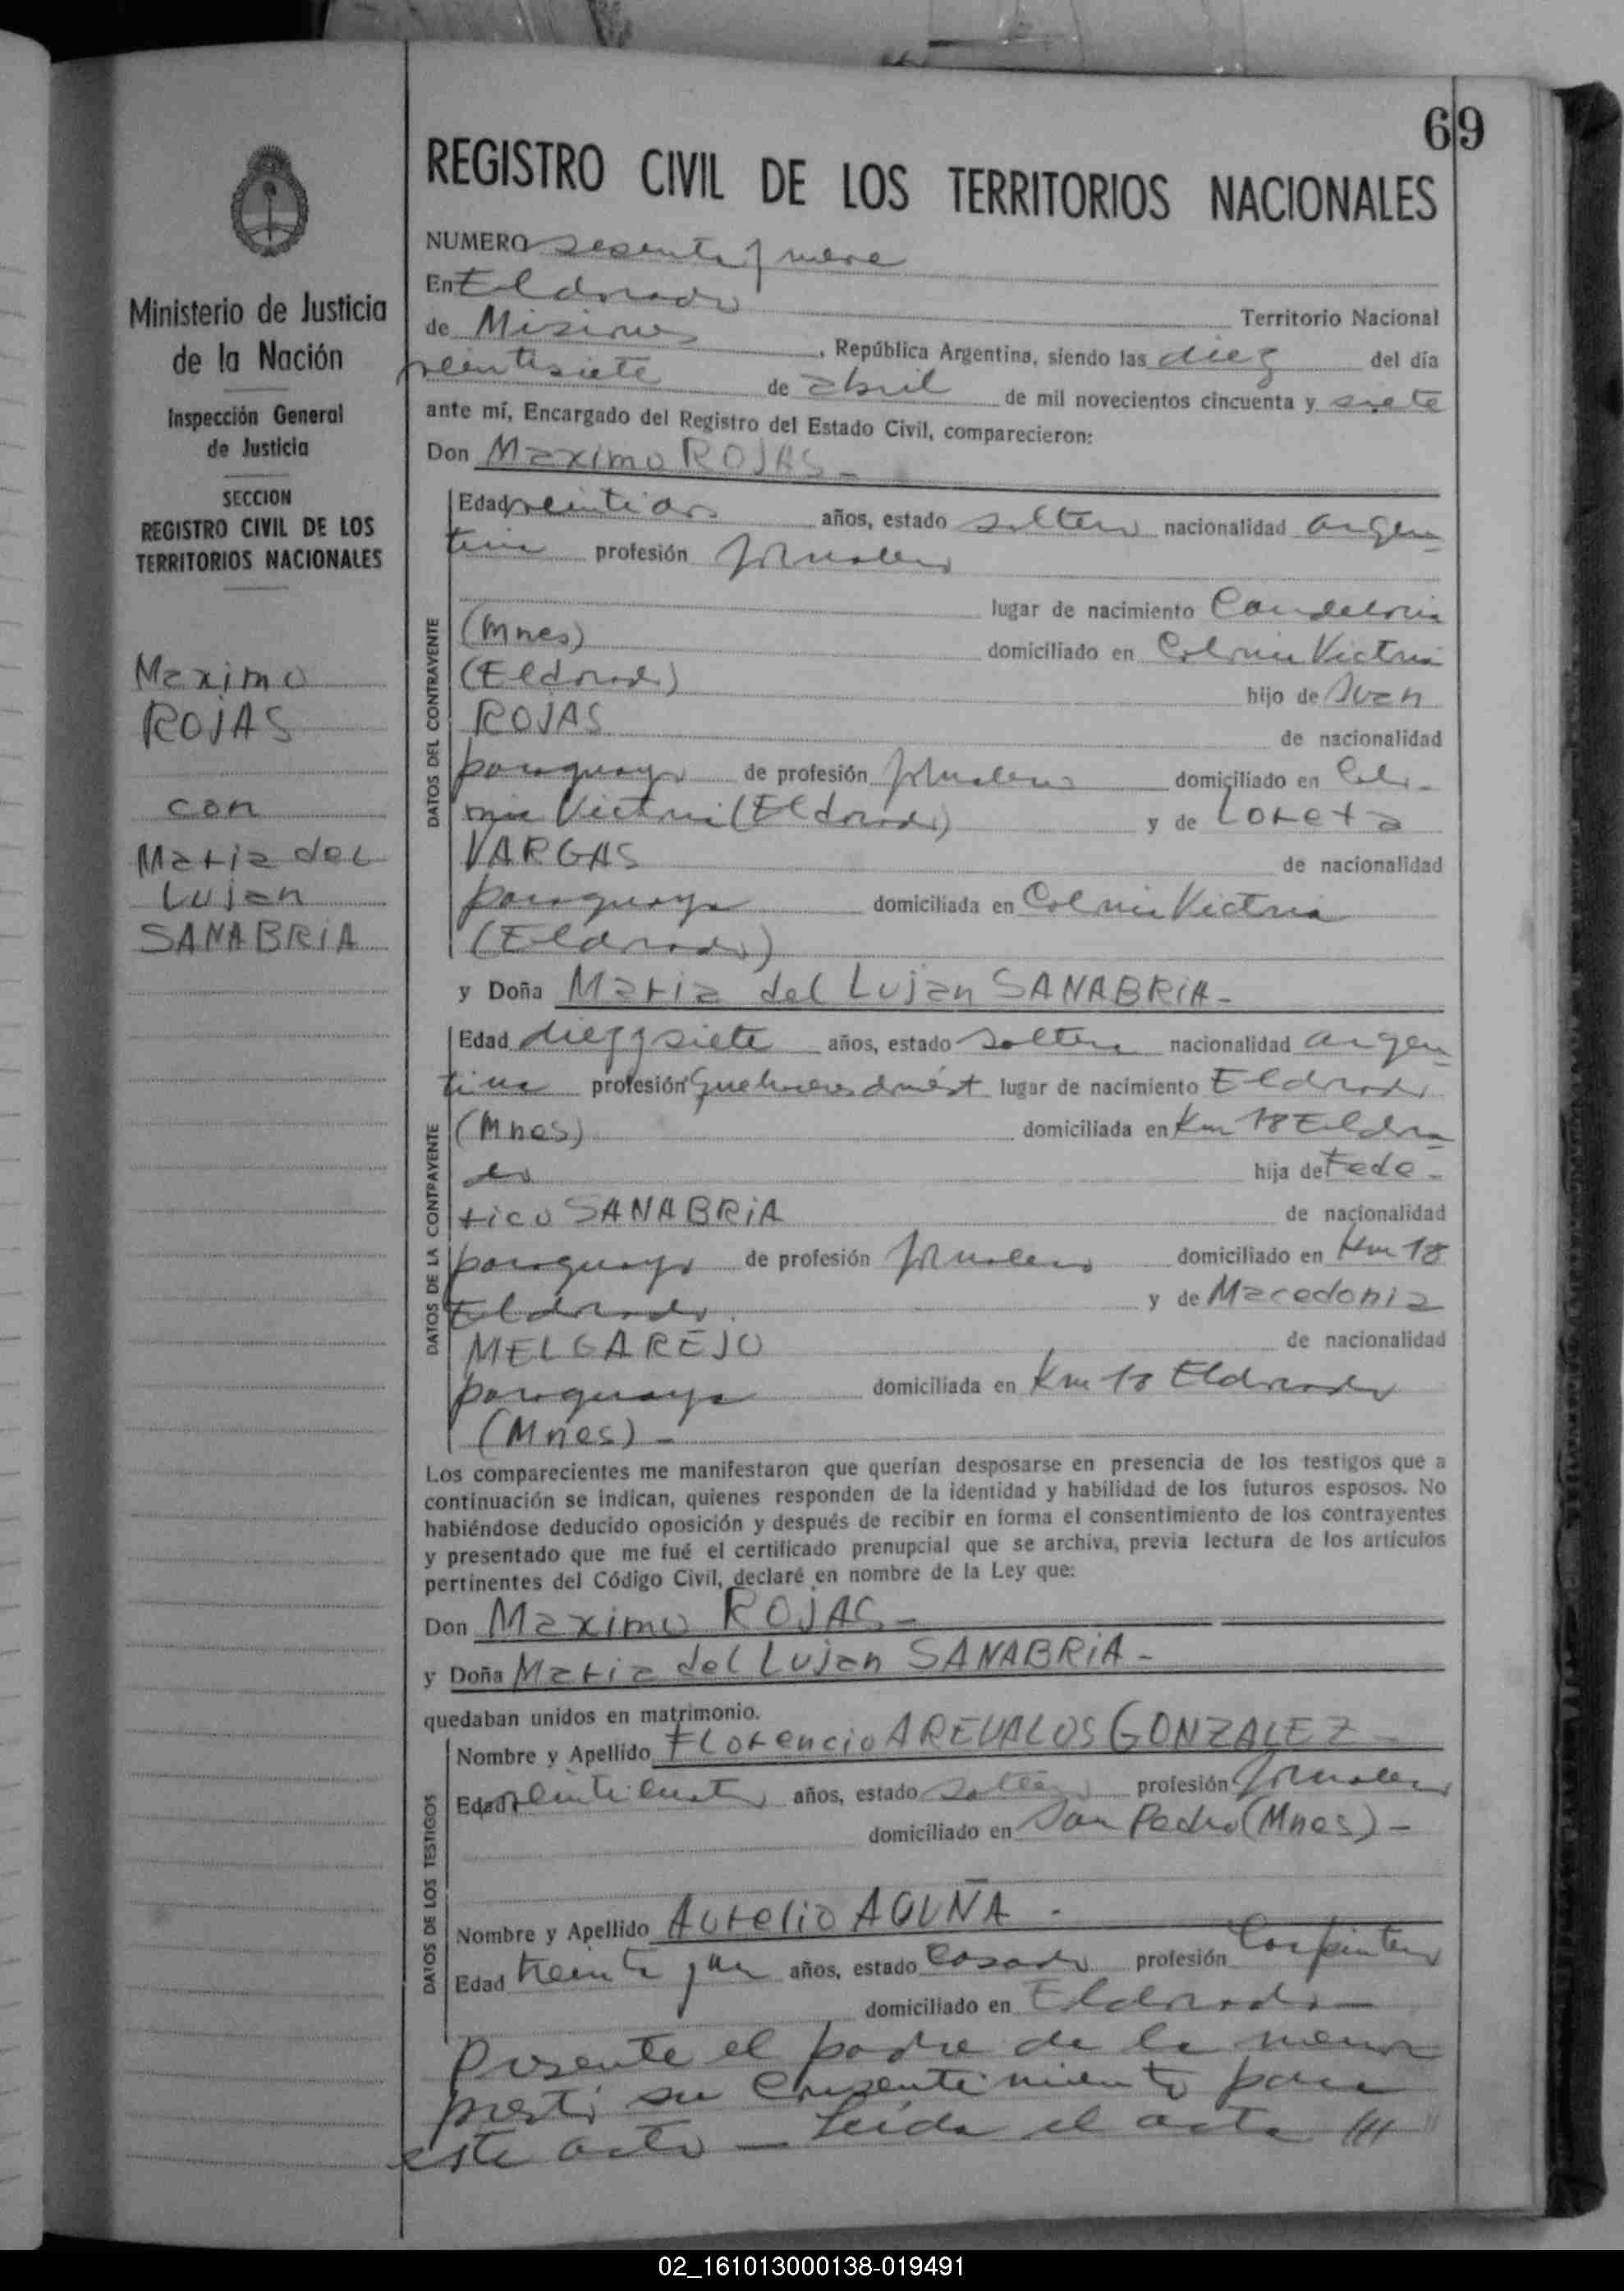 69
REGISTRO CIVIL DE LOS TERRITORIOS NACIONALES
Ministerio de Justicia
de la Nación
Inspección General
de Justicia
SECCION
REGISTRO CIVIL DE LOS
TERRITORIOS NACIONALES
Maximo
ROJAS
con
Maria del
Lujan
SANABRIA
NUMERO sesenta y nueve
En Eldorado
Territorio Nacional
de Misiones, República Argentina, siendo las diez del día
veintisiete de abril de mil novecientos cincuenta y siete
ante mí, Encargado del Registro del Estado Civil, comparecieron:
Don Maximo ROJAS -
DATOS DEL CONTRAYENTE
Edad veintidos años, estado soltero nacionalidad argen
tina profesión jornalero
lugar de nacimiento Candelaria
(Mnes) domiciliado en Colonia Victoria
(Eldorado) hijo de Juan
ROJAS de nacionalidad
paraguayo de profesión jornalero domiciliado en Colo-
nia Victoria (Eldorado) y de Loreta
VARGAS de nacionalidad
paraguaya domiciliada en Colonia Victoria
(Eldorado)
y Doña Maria del Lujan SANABRIA -
DATOS DE LA CONTRAYENTE
Edad diez y siete años, estado soltera nacionalidad argen
tina profesión Quehaceres domést lugar de nacimiento Eldorado
(Mnes) domiciliada en Km 18 Eldora
do hija de Fede-
rico SANABRIA de nacionalidad
paraguayo de profesión jornalero domiciliado en Km 18
Eldorado y de Macedonia
MELGAREJO de nacionalidad
paraguaya domiciliada en Km 18 Eldorado
(Mnes) -
Los comparecientes me manifestaron que querían desposarse en presencia de los testigos que a
continuación se indican, quienes responden de la identidad y habilidad de los futuros esposos. No
habiéndose deducido oposición y después de recibir en forma el consentimiento de los contrayentes
y presentado que me fué el certificado prenupcial que se archiva, previa lectura de los artículos
pertinentes del Código Civil, declaré en nombre de la Ley que:
Don Maximo ROJAS -
y Doña Maria del Lujan SANABRIA -
quedaban unidos en matrimonio.
DATOS DE LOS TESTIGOS
Nombre y Apellido Florencio AREVALOS GONZALEZ -
Edad veinticuatro años, estado soltero profesión jornalero
domiciliado en San Pedro (Mnes) -
Nombre y Apellido Aurelio ACUÑA -
Edad treinta y un años, estado casado profesión Carpintero
domiciliado en Eldorado -
Presente el padre de la menor
prestó su consentimiento para
este acto - Leída el acta ///
02_161013000138-019491